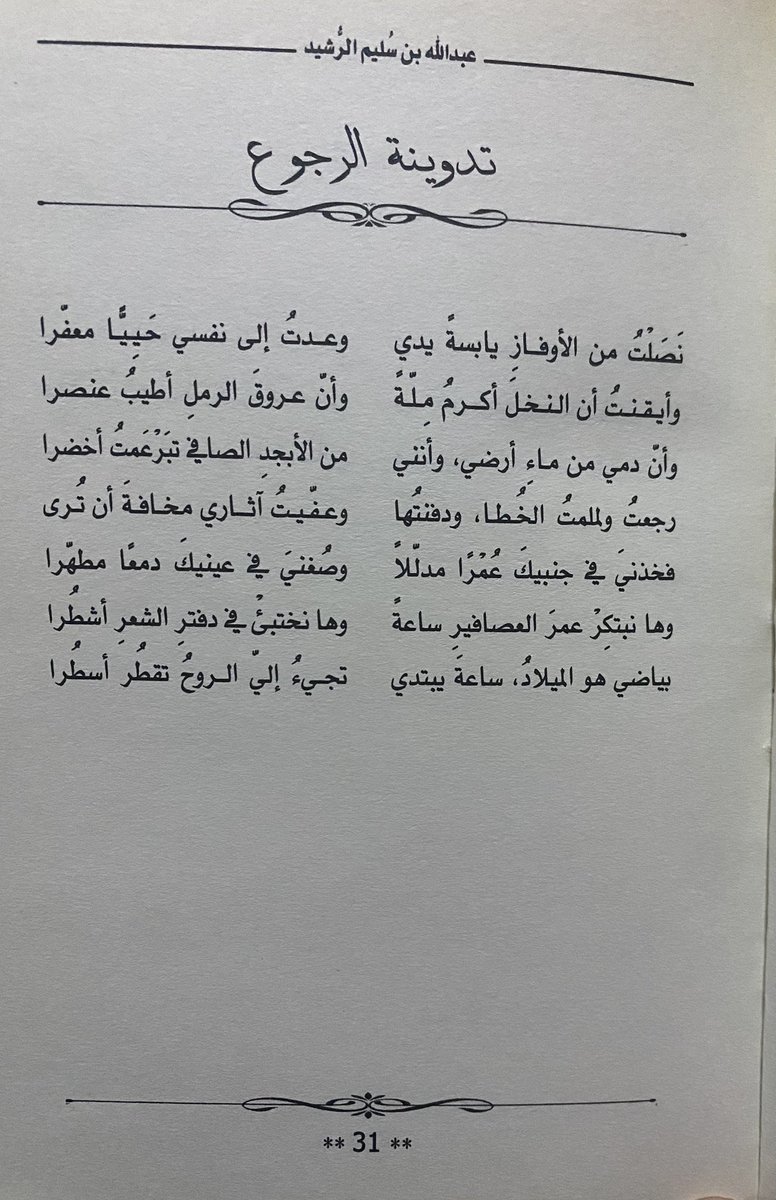 عبدالله بن سُليم الرُّشيد
تدوينة الرجوع
نَصَلْتُ من الأوفازِ يابسةً يدي وعدتُ إلى نفسي حَيِيًّا معفّرا
وأيقنتُ أن النخلَ أكرمُ مِلّةً وأنّ عروقَ الرملِ أطيبُ عنصرا
وأنّ دمي من ماءِ أرضي، وأنني من الأبجدِ الصافي تبَرْعَمتُ أخضرا
رجعتُ ولملمتُ الخُطا، ودفنتُها وعفّيتُ آثاري مخافةَ أن تُرى
فخذنيَ في جنبيكَ عُمْرًا مدلّلاً وصُغنيَ في عينيكَ دمعًا مطهّرا
وها نبتكِرْ عمرَ العصافيرِ ساعةً وها نختبئْ في دفترِ الشعرِ أشطُرا
بياضي هو الميلادُ، ساعةَ يبتدي تجيءُ إليّ الروحُ تقطُر أسطُرا
** 31 **